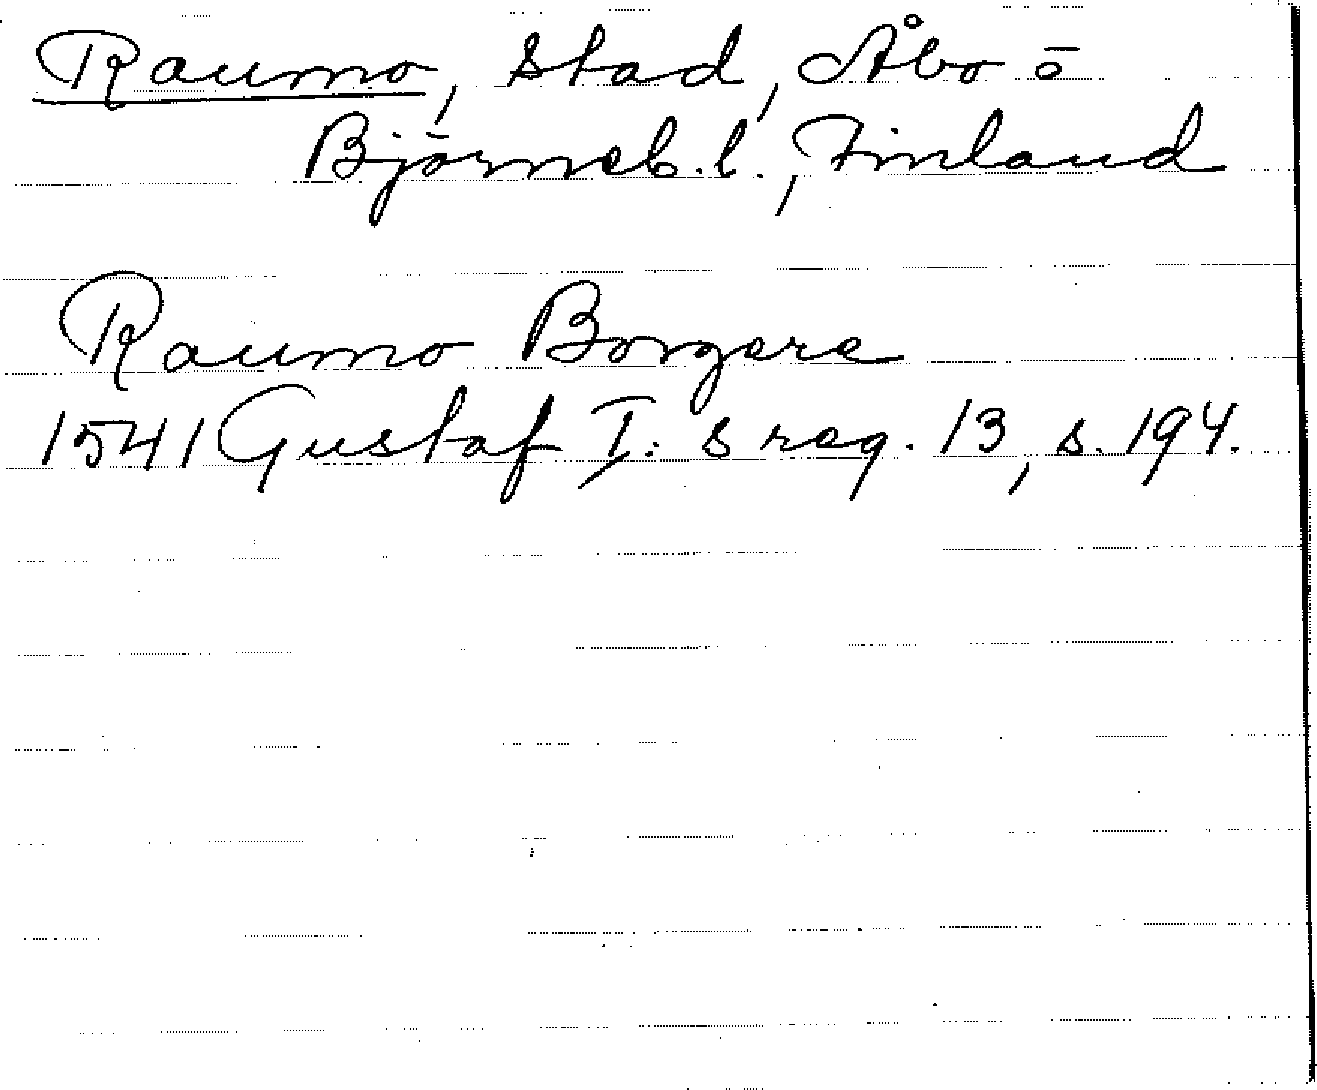 Raumo, stad, Åbo o
Björneb. l., Finland
Raumo Borgare
1541 Gustaf I: s reg. 13, s. 194.